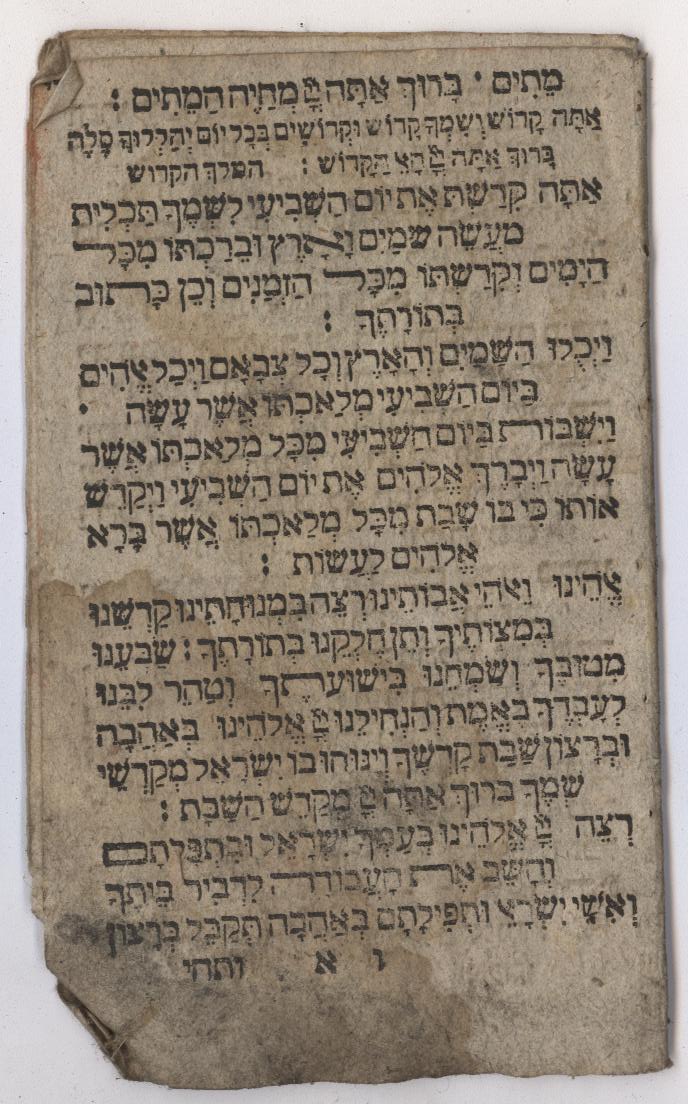 מֵתִים · בָּרוּךְ אַתָּה יְיָ מְחַיֵּה הַמֵּתִים :
אַתָּה קָדוֹשׁ וְשִׁמְךָ קָדוֹשׁ וּקְדוֹשִׁים בְּכָל יוֹם יְהַלְלוּךָ סֶּלָה
בָּרוּךְ אַתָּה יְיָ הָאֵל הַקָּדוֹשׁ : המלך הקדוש
אַתָּה קִדַּשְׁתָּ אֶת יוֹם הַשְּׁבִיעִי לִשְׁמֶךָ תַּכְלִית
מַעֲשֵׂה שָׁמַיִם וָאָרֶץ וּבֵרַכְתּוֹ מִכָּל
הַיָּמִים וְקִדַּשְׁתּוֹ מִכָּל הַזְּמַנִּים וְכֵן כָּתוּב
בְּתוֹרָתֶךָ :
וַיְכֻלּוּ הַשָּׁמַיִם וְהָאָרֶץ וְכָל צְבָאָם וַיְכַל אֱלֹהִים
בַּיּוֹם הַשְּׁבִיעִי מְלַאכְתּוֹ אֲשֶׁר עָשָׂה ·
וַיִּשְׁבּוֹת בַּיּוֹם הַשְּׁבִיעִי מִכָּל מְלַאכְתּוֹ אֲשֶׁר
עָשָׂה וַיְבָרֶךְ אֱלֹהִים אֶת יוֹם הַשְּׁבִיעִי וַיְקַדֵּשׁ
אוֹתוֹ כִּי בוֹ שָׁבַת מִכָּל מְלַאכְתּוֹ אֲשֶׁר בָּרָא
אֱלֹהִים לַעֲשׂוֹת :
אֱלֹהֵינוּ וֵאלֹהֵי אֲבוֹתֵינוּ רְצֵה בִּמְנוּחָתֵינוּ קַדְּשֵׁנוּ
בְּמִצְוֹתֶיךָ וְתֵן חֶלְקֵנוּ בְּתוֹרָתֶךָ : שַׂבְּעֵנוּ
מִטּוּבֶךָ וְשַׂמְּחֵנוּ בִּישׁוּעָתֶךָ וְטַהֵר לִבֵּנוּ
לְעָבְדְּךָ בֶּאֱמֶת וְהַנְחִילֵנוּ יְיָ אֱלֹהֵינוּ בְּאַהֲבָה
וּבְרָצוֹן שַׁבַּת קָדְשֶׁךָ וְיָנוּחוּ בוֹ יִשְׂרָאֵל מְקַדְּשֵׁי
שְׁמֶךָ בָּרוּךְ אַתָּה יְיָ מְקַדֵּשׁ הַשַּׁבָּת :
רְצֵה יְיָ אֱלֹהֵינוּ בְּעַמְּךָ יִשְׂרָאֵל וּבִתְפִלָּתָם
וְהָשֵׁב אֶת הָעֲבוֹדָה לִדְבִיר בֵּיתֶךָ
וְאִשֵּׁי יִשְׂרָאֵל וּתְפִילָּתָם בְּאַהֲבָה תְקַבֵּל בְּרָצוֹן
ו א ותהי